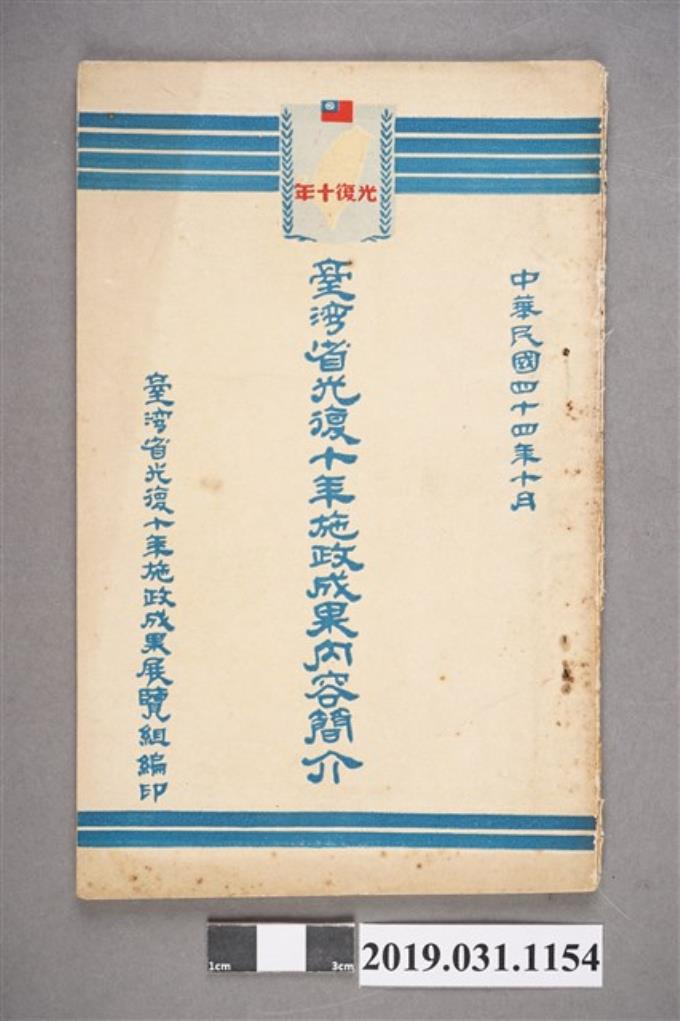 光復十年
中華民國四十四年十月
臺湾省光復十年施政成果內容簡介
臺湾省光復十年施政成果展覽組編印
1cm
3cm
2019.031.1154